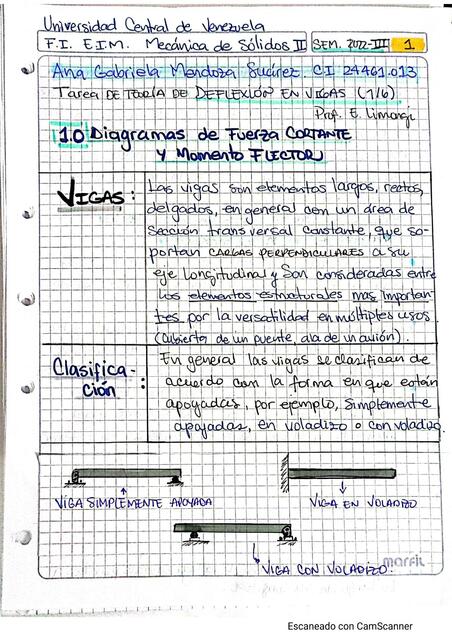 Universidad Central de Venezuela
F.I. E.I.M. Mecánica de Sólidos II SEM. 2022-III 1
Ana Gabriela Mendoza Suárez. CI 24461.013
Tarea DE TEORÍA DE DEFLEXIÓN EN VIGAS (1/6)
Prof. E. Limongi
1.0 Diagramas de Fuerza CORTANTE
y Momento FLECTOR
VIGAS:
Las vigas son elementos largos, rectos,
delgados, en general con un área de
sección transversal constante, que so-
portan CARGAS PERPENDICULARES a su
eje longitudinal y Son consideradas entre
los elementos estructurales mas Importan-
tes por la versatilidad en múltiples usos
(cubierta de un puente, ala de un avión).
Clasifica-
ción:
En general las vigas se clasifican de
acuerdo con la forma en que están
apoyadas, por ejemplo, Simplemente
apoyadas, en voladizo o con voladizo.
VIGA SIMPLEMENTE APOYADA
VIGA EN VOLADIZO
VIGA CON VOLADIZO.
marfil
Escaneado con CamScanner